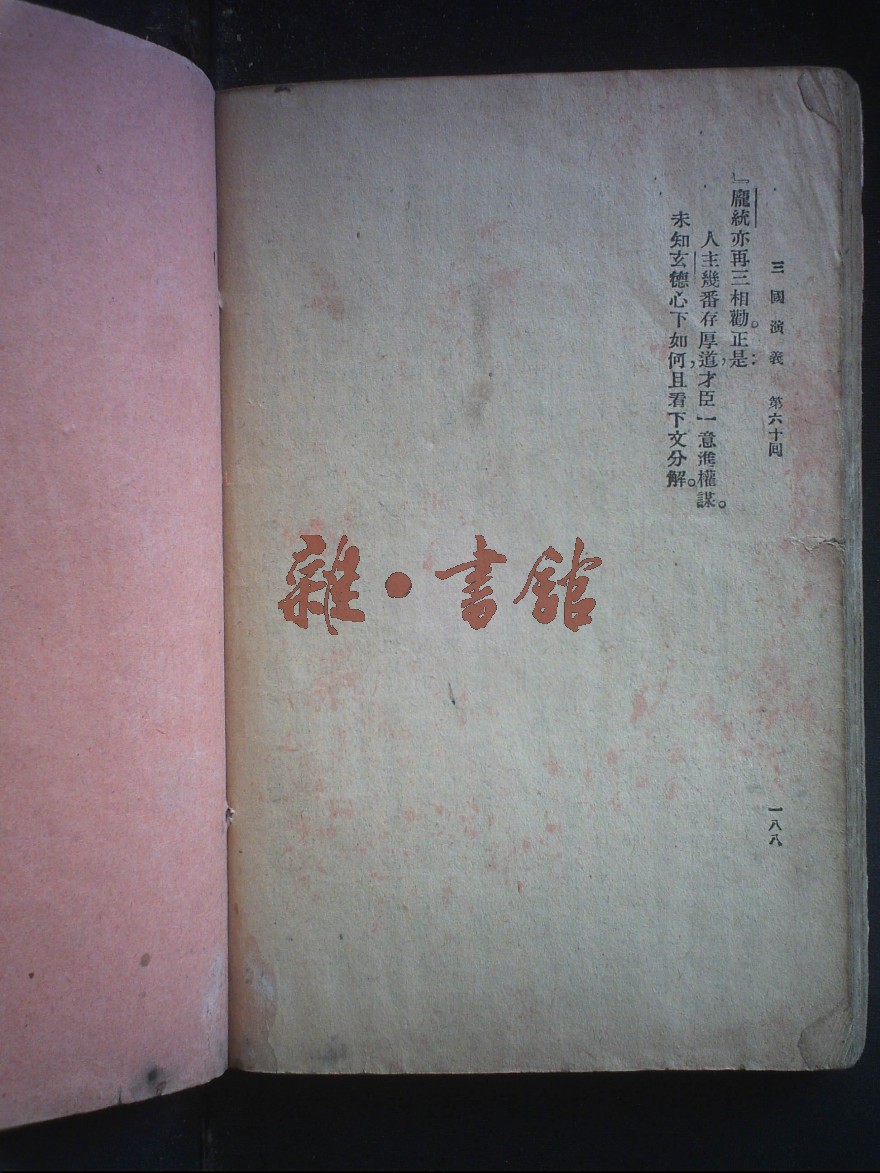 三國演義　第六十回
』龐統亦再三相勸。正是：
人主幾番存厚道，才臣一意進權謀。
未知玄德心下如何，且看下文分解。
一八八
雜·書館